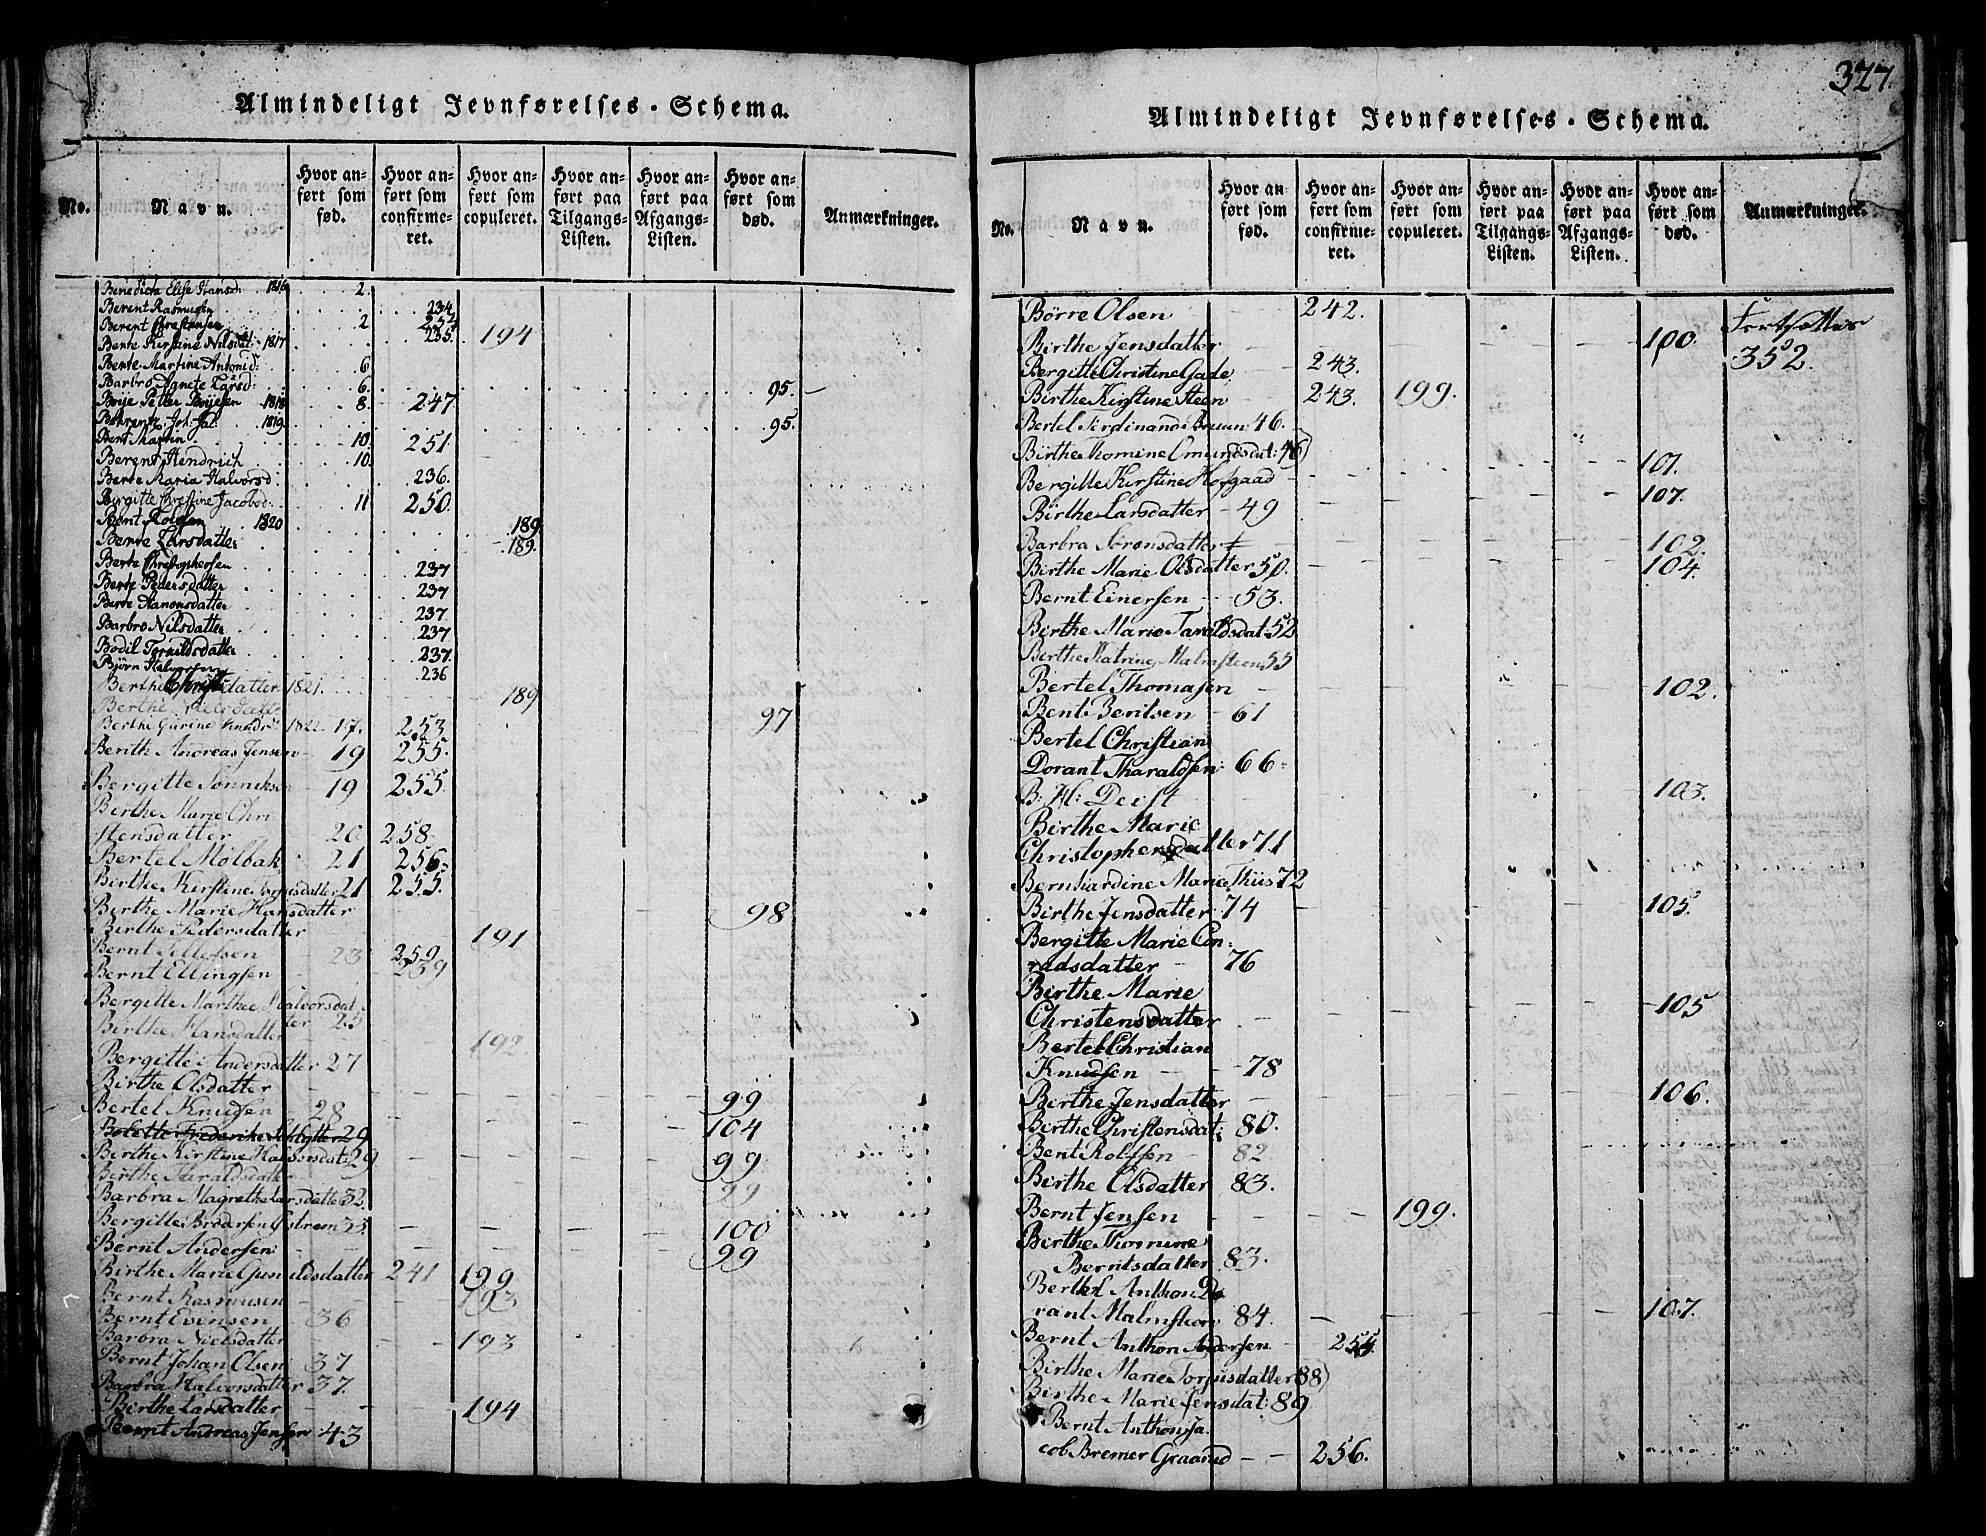 Almindeligt Jevnførelses-Schema.
No. Navn. Hvor anført som fød. Hvor anført som confirmeret. Hvor anført som copuleret. Hvor anført paa Tilgangs-Listen. Hvor anført paa Afgangs-Listen. Hvor anført som død. Anmærkninger.
Benedicta Elise Hansd: 1816 2
Berent Rasmusen 234
Berent Christensen 2
Berte Kirstine Nilsdat: 1817 235. 194
Berte Martine Antonid: 6
Barbro Agnete Larsd: 6. 95.
Boije Petter Boijesen 1818 8. 247
1819 95.
Bent Martin 10. 251
Berent Hendrich 10.
Berte Maria Halvorsd. 236.
Birgitte Chrestine Jacobsd: 11 250.
Bent Rolfsen 1820 189
Berte Larsdatter 189.
Berte Chrestophersen 237
Berte Pedersdatter 237
Berte Aanonsdatter 237.
Barbro Nilsdatter 237
Bodil Torkildsdatter 237.
Bjørn Halvorsen 236
Berthe datter 1821. 189
Berthe Nielsdatter 97
Berthe Gurine Knudsd 1822 17. 253
Benth Andreas Jensen 19 255.
Bergitte Sønniksen 19 255.
Berthe Marie Chri
stensdatter 20 258.
Bertel Mølbak 21 256.
Birthe Kirstine Torgusdatter 21 255.
Birthe Marie Hansdatter 98
Birthe Pedersdatter 191
Bernt Tellefsen 23 259
Bernt Ellingsen 259
Bergitte Marthee Halvorsdat
ter 25
Birthe Hansdatter 192.
Bergitte Andersdatter 27
Birthe Olsdatter 99
Bertel Knudsen 28
Bolette Frederike Schlytter 29 104
Birthe Kirstine Halvorsdat: 29 99
Birthe Tharaldsdatter 99
Barbra Magrethe Larsdatter 32.
Bergitte Brodersen Østrem 33. 100
Bernt Andersen 99
Birthe Marie Gunuldsdatter 241 199
Bernt Rasmusen 193
Bernt Evensen 36
Barbra Nielsdatter 193
Bernt Johan Olsen 37
Barbra Halvorsdatter 37.
Birthe Larsdatter 194
Bernt Andreas Jensen 43
327.
Almindeligt Jevnførelses-Schema.
No. Navn. Hvor anført som fød. Hvor anført som confirmeret. Hvor anført som copuleret. Hvor anført paa Tilgangs-Listen. Hvor anført paa Afgangs-Listen. Hvor anført som død. Anmærkninger.
Børre Olsen 242.
Birthe Jensdatter 100. Fortsættes
352.
Bergitte Christine Gade 243.
Birthe Kirstine Steen 243. 199.
Bertel Ferdinand Bruun 46.
Birthe Thomine Omundsdat: 46) 107.
Bergitte Kirstine Hofgaad 107.
Birthe Larsdatter 49
Barbra Sørensdatter 102.
Birthe Marie Olsdatter 50. 104.
Bernt Einersen 53.
Birthe Marie Taraldsdat: 52
Berthe Katrine Malmsteen 55
Bertel Thomasen 102.
Bent Bentsen 61
Bertel Christian
Dorant Tharaldsen: 66
B: H: Deist 103.
Birthe Marie
Christophersdatter 71
Bernhardine Marie Thiis 72
Birthe Jensdatter 74 105.
Bergitte Marie Con:
radsdatter 76
Birthe Marie
Christensdatter 105
Bertel Christian
Knudsen 78
Birthe Jensdatter 106.
Berthe Christensdat: 80.
Bent Rolfsen 82
Birthe Olsdatter 83.
Bernt Jensen 199.
Birthe Thomine
Berntsdatter 83.
Berthel Anthon Do
rant Malmsteen 84. 107.
Bernt Anthon Andersen 254.
Birthe Marie Torjusdatter 88)
Birthe Marie Jensdat: 89
Bernt Anthon Ja
cob Bremer Graarud 256.